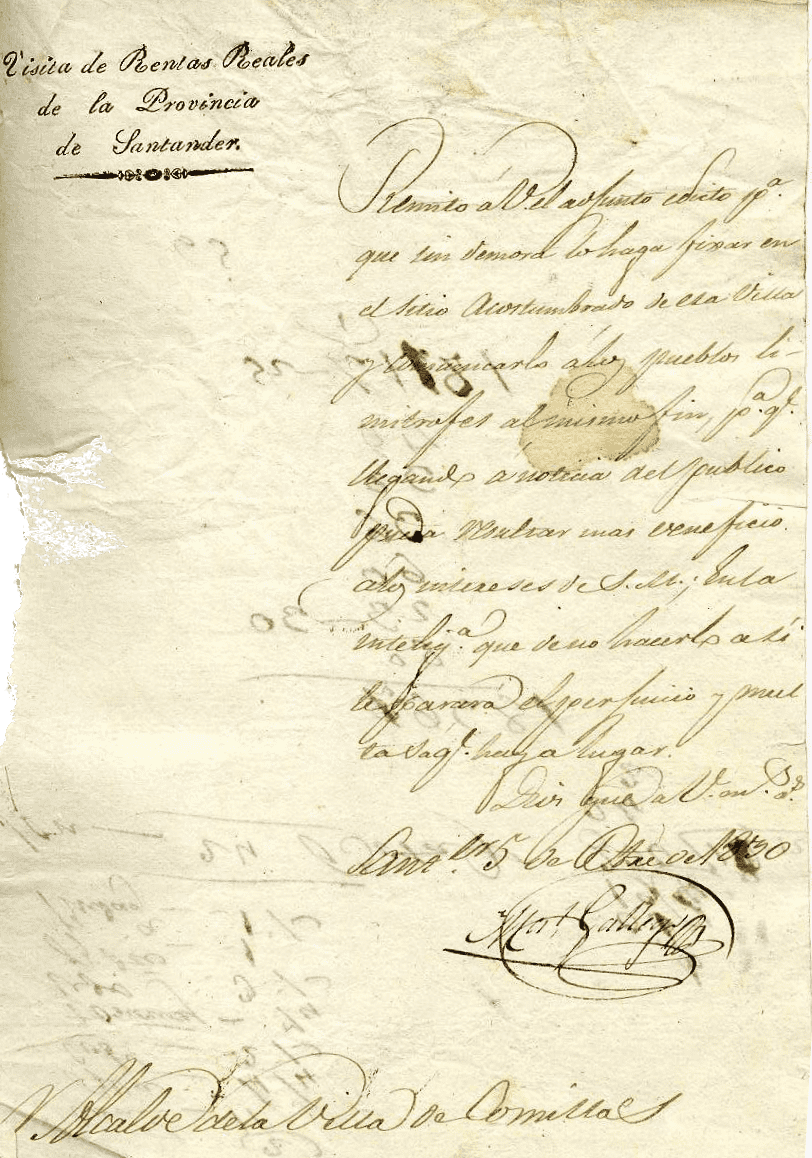 Visita de Rentas Reales
de la Provincia
de Santander.
Remito á V. el adjunto edicto pª.
que sin demora lo haga fixar en
el sitio acostumbrado de esa Villa
y comunicarlo álos pueblos li-
mitrofes al mismo fin, pª. qᵉ.
llegando a noticia del publico
pueda resultar mas veneficio
alos intereses de S. M.; Enla
inteligª. que deno hacerlo asi
le parará el perjuicio y mul
ta aqᵉ. haya lugar.
Dios gue a V. m. aˢ.
Santʳ. 5 de Obre de 1830
Gallego
Alcalde dela Villa de Comillas